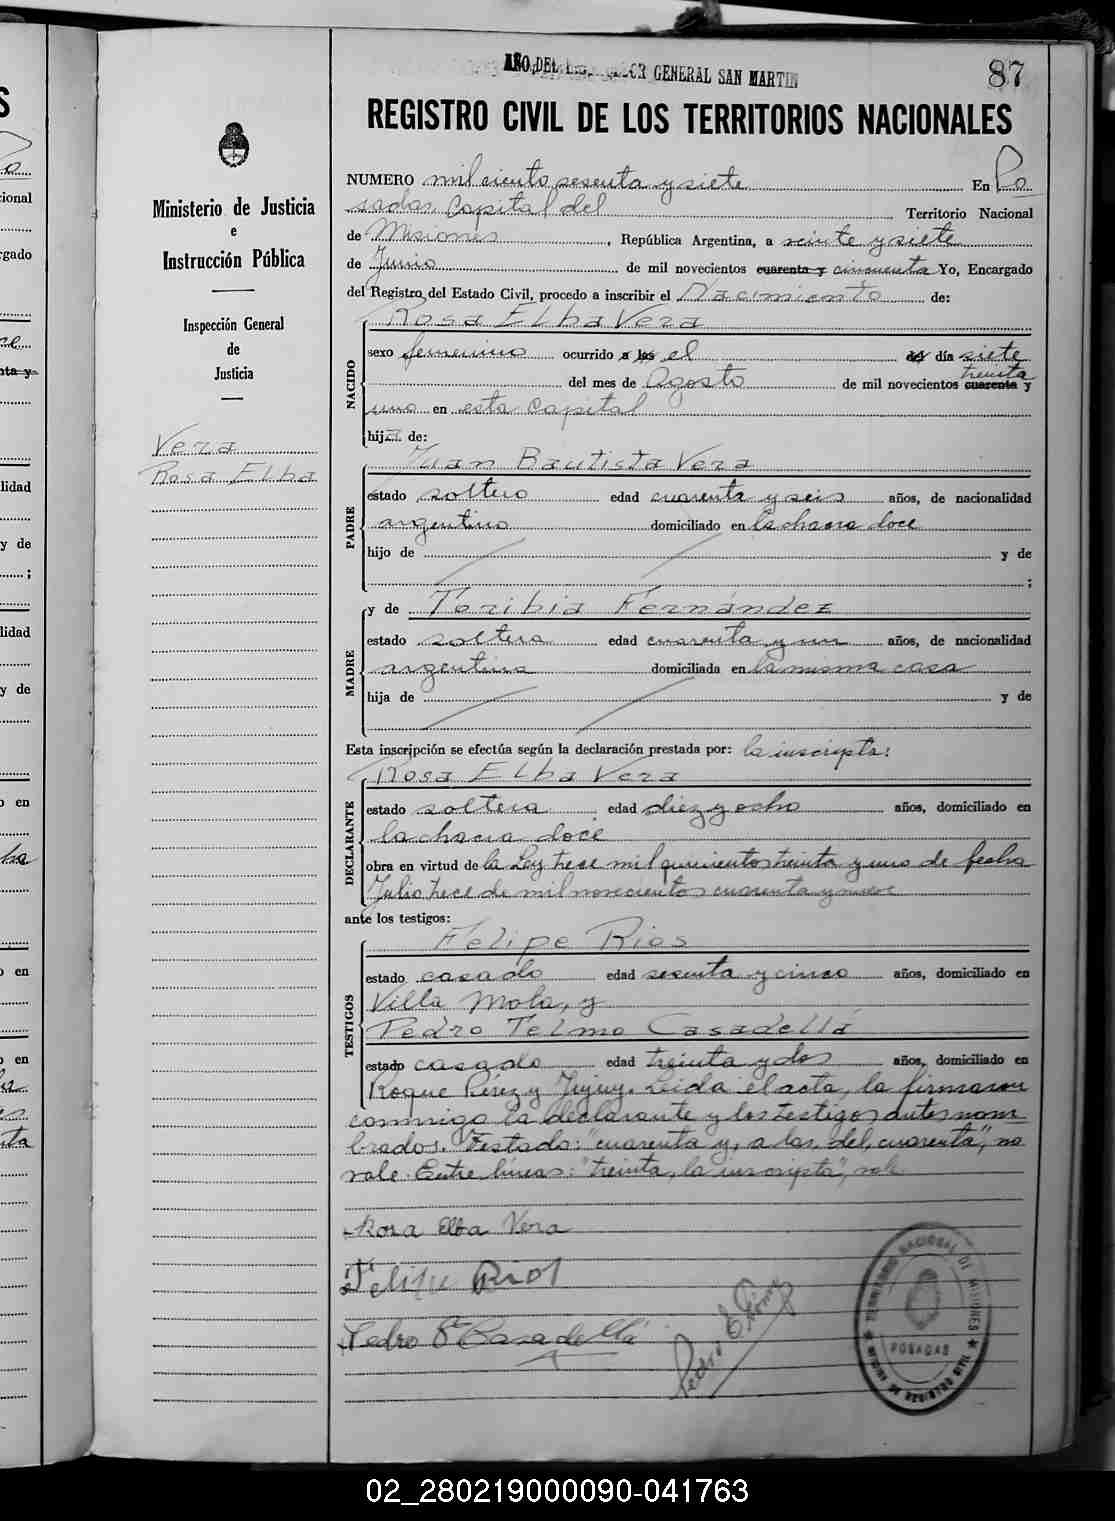 AÑO DEL GENERAL SAN MARTIN
87
REGISTRO CIVIL DE LOS TERRITORIOS NACIONALES
Ministerio de Justicia
e
Instrucción Pública
Inspección General
de
Justicia
Vera
Rosa Elba
NUMERO mil ciento sesenta y siete En Po
sadas Capital del Territorio Nacional
de Misiones, República Argentina, a veinte y siete
de Junio de mil novecientos cuarenta y cincuenta Yo, Encargado
del Registro del Estado Civil, procedo a inscribir el Nacimiento de:
Rosa Elba Vera
NACIDO
sexo femenino ocurrido a las el del día siete
treinta
del mes de Agosto de mil novecientos cuarenta y
uno en esta Capital
hija de:
Juan Bautista Vera
PADRE
estado soltero edad cuarenta y seis años, de nacionalidad
argentino domiciliado en la chacra doce
hijo de y de
;
y de Toribia Fernández
MADRE
estado soltera edad cuarenta y un años, de nacionalidad
argentina domiciliada en la misma casa
hija de y de
Esta inscripción se efectúa según la declaración prestada por: la inscripta:
Rosa Elba Vera
DECLARANTE
estado soltera edad diez y ocho años, domiciliado en
la chacra doce
obra en virtud de la Ley trece mil quinientos treinta y uno de fecha
Julio trece de mil novecientos cuarenta y nueve
ante los testigos:
Felipe Rios
TESTIGOS
estado casado edad sesenta y cinco años, domiciliado en
Villa Mola, y
Pedro Telmo Casadellá
estado casado edad treinta y dos años, domiciliado en
Roque Pérez y Jujuy. Leida el acta, la firmaron
conmigo la declarante y los testigos antes nom
brados. Testado: "cuarenta y, a las, del, cuarenta", no
vale. Entre líneas: "treinta, la inscripta", vale
Rosa Elba Vera
Felipe Rios
Pedro T. Casadellá
Pedro E.
TERRITORIO NACIONAL DE MISIONES
POSADAS
OFICINA DE REGISTRO CIVIL
lidad
y de
;
lidad
y de
en
en
en
ional
rgado
02_280219000090-041763